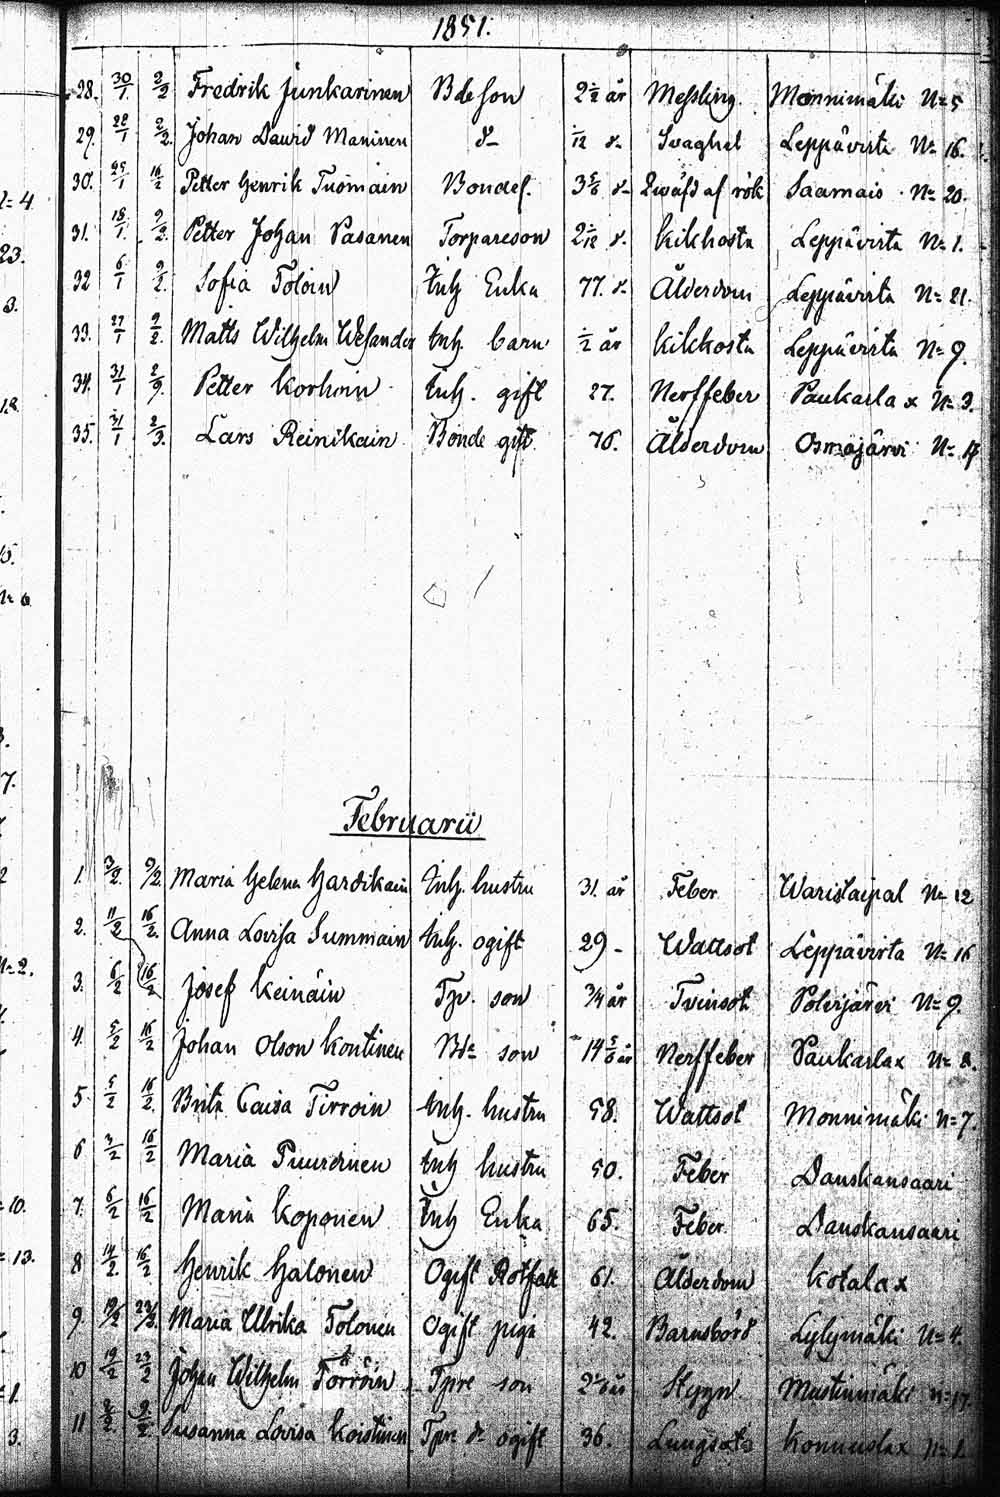 1851.
28. 30/1. 2/2 Fredrik Junkarinen Bdeson 2 1/2 år Messling. Monnimäki N= 5
29. 28/1 2/2. Johan David Maninen d- 1/12 d- Svaghet Leppävirta N= 16.
30. 25/1 16/2 Petter Henrik Tuomain Bondes. 3 5/6 d- Qwäfd af rök Saamais N= 20.
31. 18/1. 9/2. Petter Johan Pasanen Torpareson 2 1/12 d. Kikhosta Leppävirta N= 1.
32 6/1 9/2. Sofia Toloin Inh Enka 77. d- Ålderdom Leppävirta N= 21.
33. 27/1 9/2. Matts Wilhelm Inh. barn 1/2 år Kikhosta Leppävirta N= 9.
34. 31/1 2/9. Petter Korhoin Inh. gift 27. Nerffeber Paukarlax N= 3.
35. 31/1 2/3. Lars Reinikain Bonde gift 76. Ålderdom Osmajärvi N= 17
Februarii
1. 3/2. 9/2. Maria Helena Hardikain Inh. hustru 31. år Feber N= 12
2. 11/2 16/2. Anna Lovisa Summain Inh. ogift 29- Wattsot Leppävirta N= 16
3. 6/2 16/2 Josef Keinäin Tpr. son 3/4 år Tvinsot Polvijärvi N= 9.
4. 5/2 16/2 Johan Olson Kontinen Bde son 14 5/6 år Nerffeber Paukarlax N= 8.
5 5/2 16/2. Brita Caisa Tirroin Inh. hustru 58. Wattsot Monnimäki N= 7.
6 3/2 16/2 Maria Puurunen Inh hustru 50. Feber Danskansaari
7. 6/2 16/2 Maria Koponen Inh Enka 65. Feber Danskansaari
8 14/2. 16/2 Henrik Halonen Ogift Rotfatt 61. Ålderdom Kotalax
9. 19/2 23/2. Maria Ulrika Tolonen Ogift piga 42. Barnsbörd Lylymäki N= 4.
10 19/2 23/2 Johan Wilhelm Torröin Tpre son Mustinmäki N= 17.
11 2/2. 9/2. Susanna Lovisa Koistinen Tpre dr ogift 36. Lungsot Konnuslax